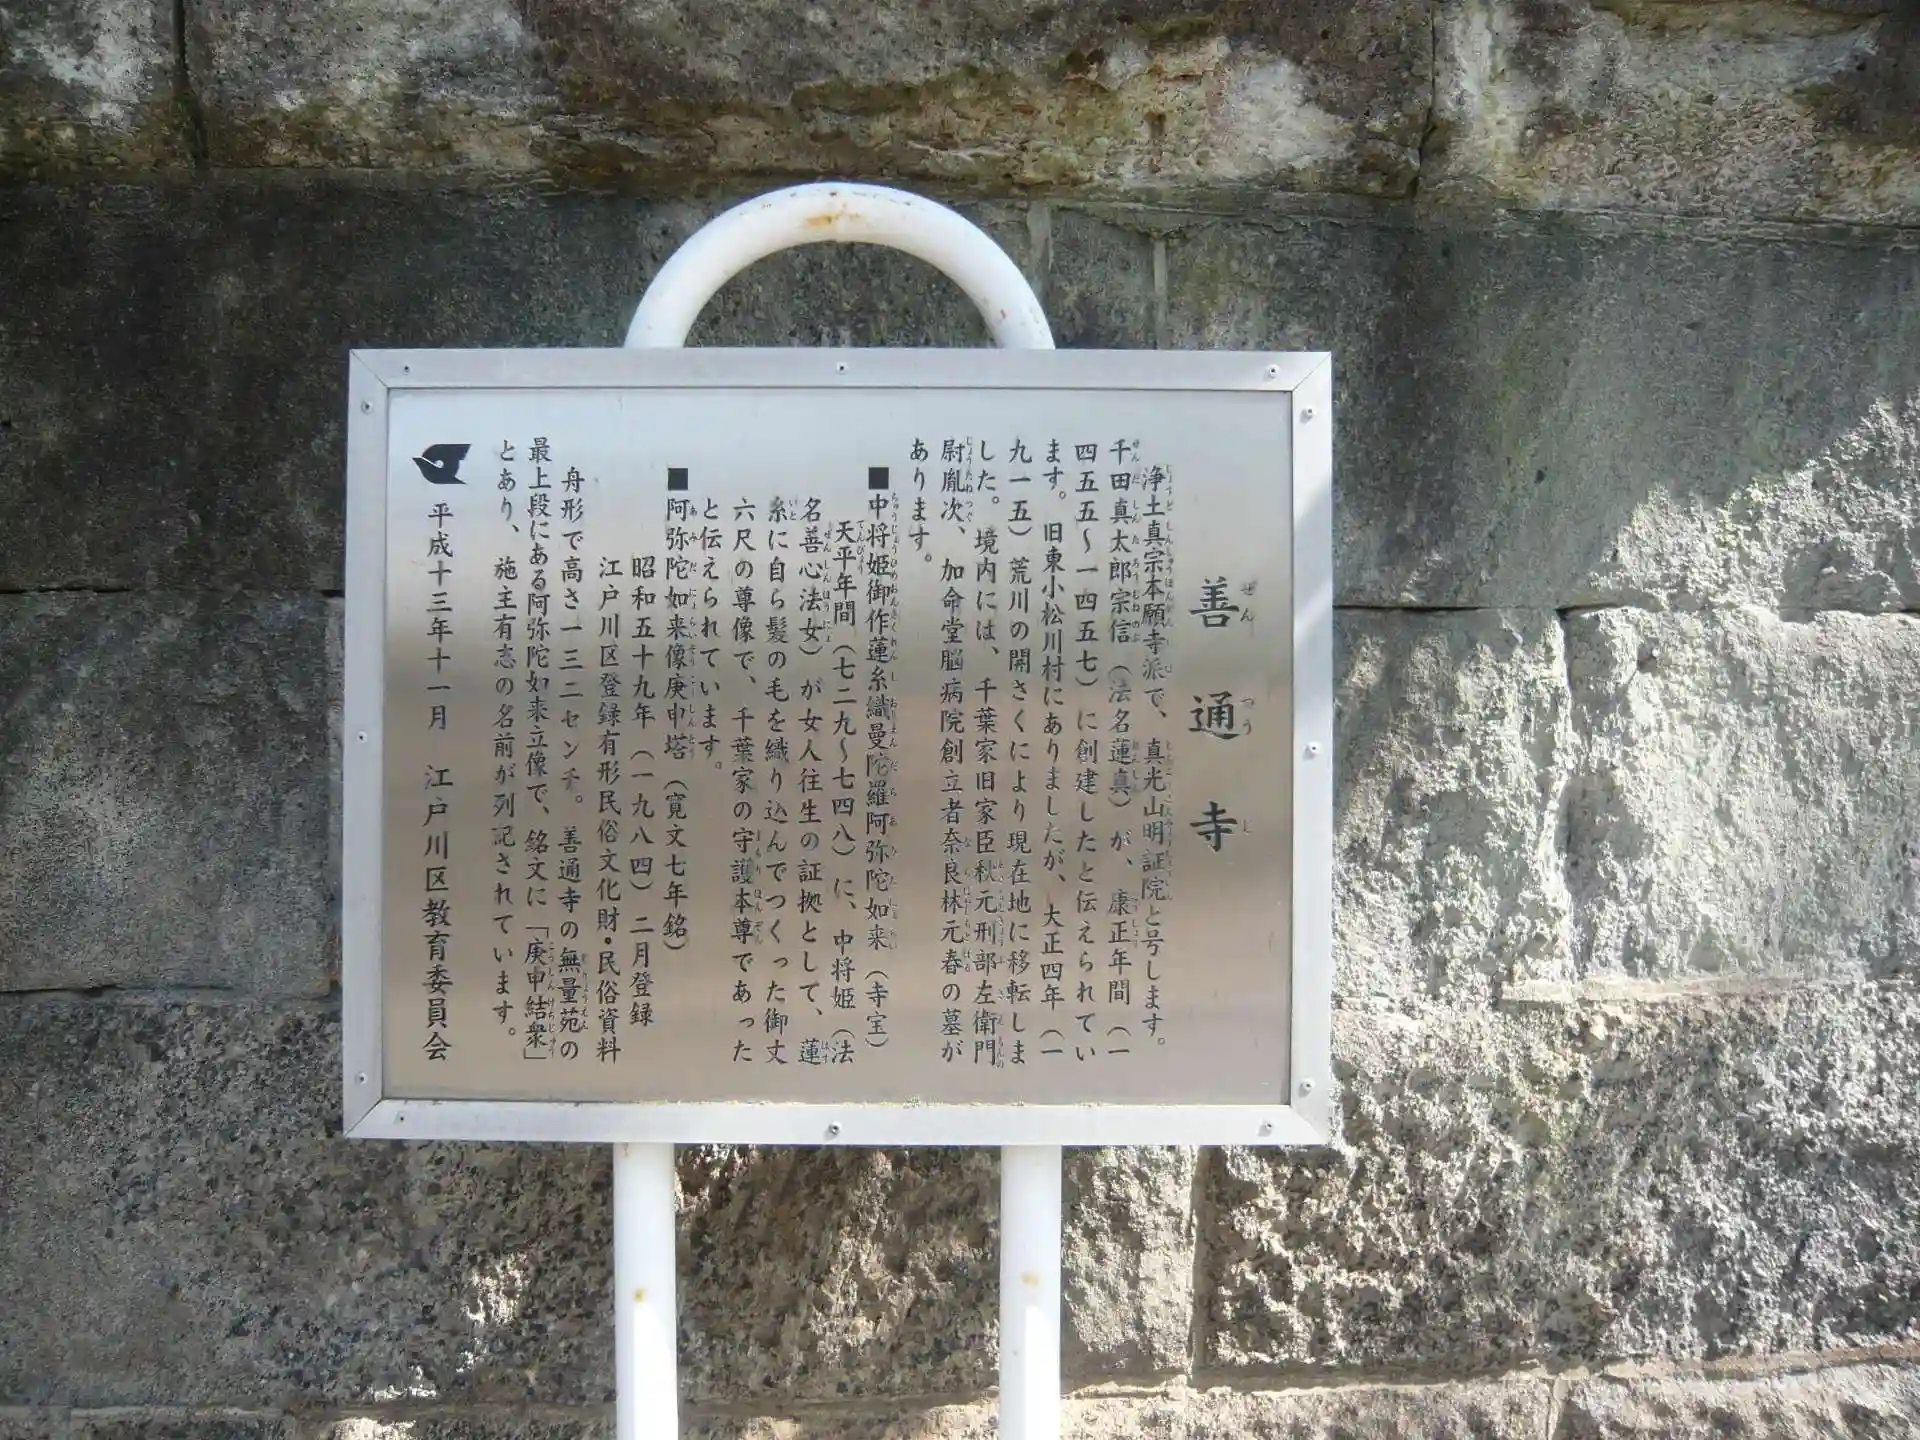 善通寺
浄土真宗本願寺派で、真光山明証院と号します。
千田真太郎宗信（法名蓮真）が、康正年間（一
四五五〜一四五七）に創建したと伝えられてい
ます。旧東小松川村にありましたが、大正四年（一
九一五）荒川の開さくにより現在地に移転しま
した。境内には、千葉家旧家臣秋元刑部左衛門
尉胤次、加命堂脳病院創立者奈良林元春の墓が
あります。
■中将姫御作蓮糸織曼陀羅阿弥陀如来（寺宝）
天平年間（七二九〜七四八）に、中将姫（法
名善心法女）が女人往生の証拠として、蓮
糸に自ら髪の毛を織り込んでつくった御丈
六尺の尊像で、千葉家の守護本尊であった
と伝えられています。
■阿弥陀如来像庚申塔（寛文七年銘）
昭和五十九年（一九八四）二月登録
江戸川区登録有形民俗文化財・民俗資料
舟形で高さ一三二センチ。善通寺の無量苑の
最上段にある阿弥陀如来立像で、銘文に「庚申結衆」
とあり、施主有志の名前が列記されています。
平成十三年十一月　江戸川区教育委員会